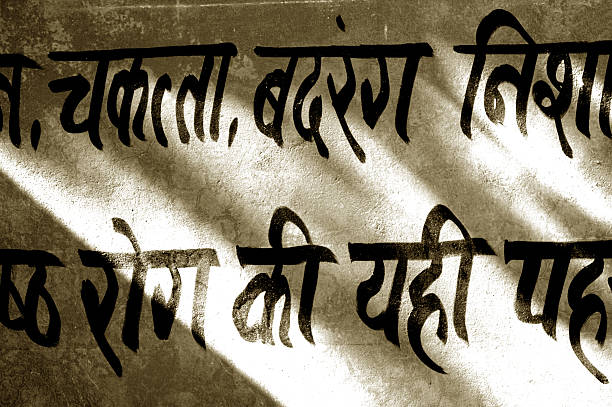 चकत्ता, बदरंग निशा
ष्ठ रोग की यही पह